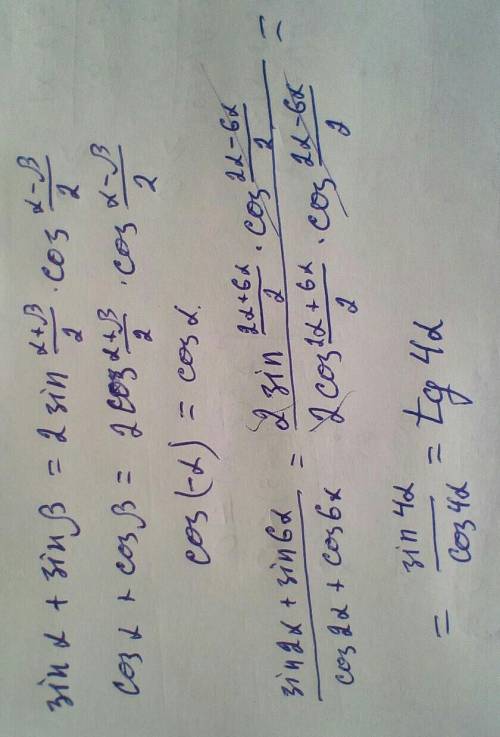 sin α + sin β = 2 sin (α+β)/2 · cos (α-β)/2
cos α + cos β = 2 cos (α+β)/2 · cos (α-β)/2
cos(-α) = cos α.
(sin2α + sin6α)/(cos2α + cos6α) = (2 sin (2α+6α)/2 · cos (2α-6α)/2)/(2 cos (2α+6α)/2 · cos (2α-6α)/2) =
= (sin 4α)/(cos 4α) = tg 4α